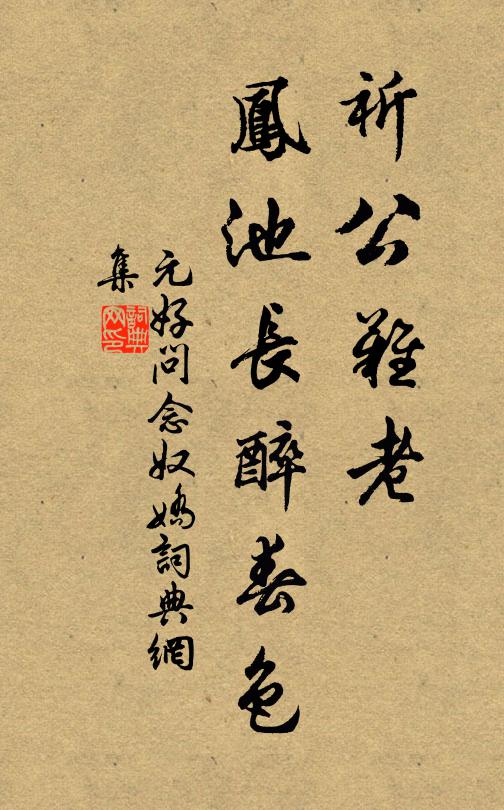 祈公難老
鳳池長醉春色
元好問念奴嬌詞典網
集
詞典網印